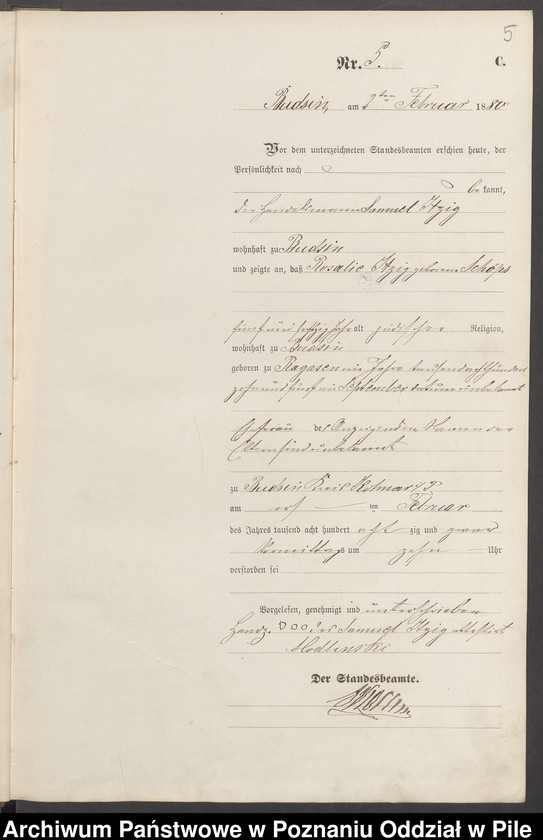 5
Nr. 5.
C.
Budsin, am 2ten Februar 1880
Vor dem unterzeichneten Standesbeamten erschien heute, der
Persönlichkeit nach
be kannt,
der Handelsmann Samuel Itzig
wohnhaft zu Budsin
und zeigte an, daß Rosalie Itzig geborene Schöps
fünf und sechzig Jahr alt jüdischer Religion,
wohnhaft zu Budsin
geboren zu Rogasen im Jahre tausend acht hundert
zehn und fünf im September datum unbekannt
Ehefrau des Anzeigenden Namen der
Eltern sind unbekannt
zu Budsin Kreis Kolmar i/P
am ersten Februar
des Jahres tausend acht hundert acht zig und
Vormittags um zehn Uhr
verstorben sei
Vorgelesen, genehmigt und unterschrieben
Handz. des Samuel Itzig attestirt
Modlinski
Der Standesbeamte.
Archiwum Państwowe w Poznaniu Oddział w Pile